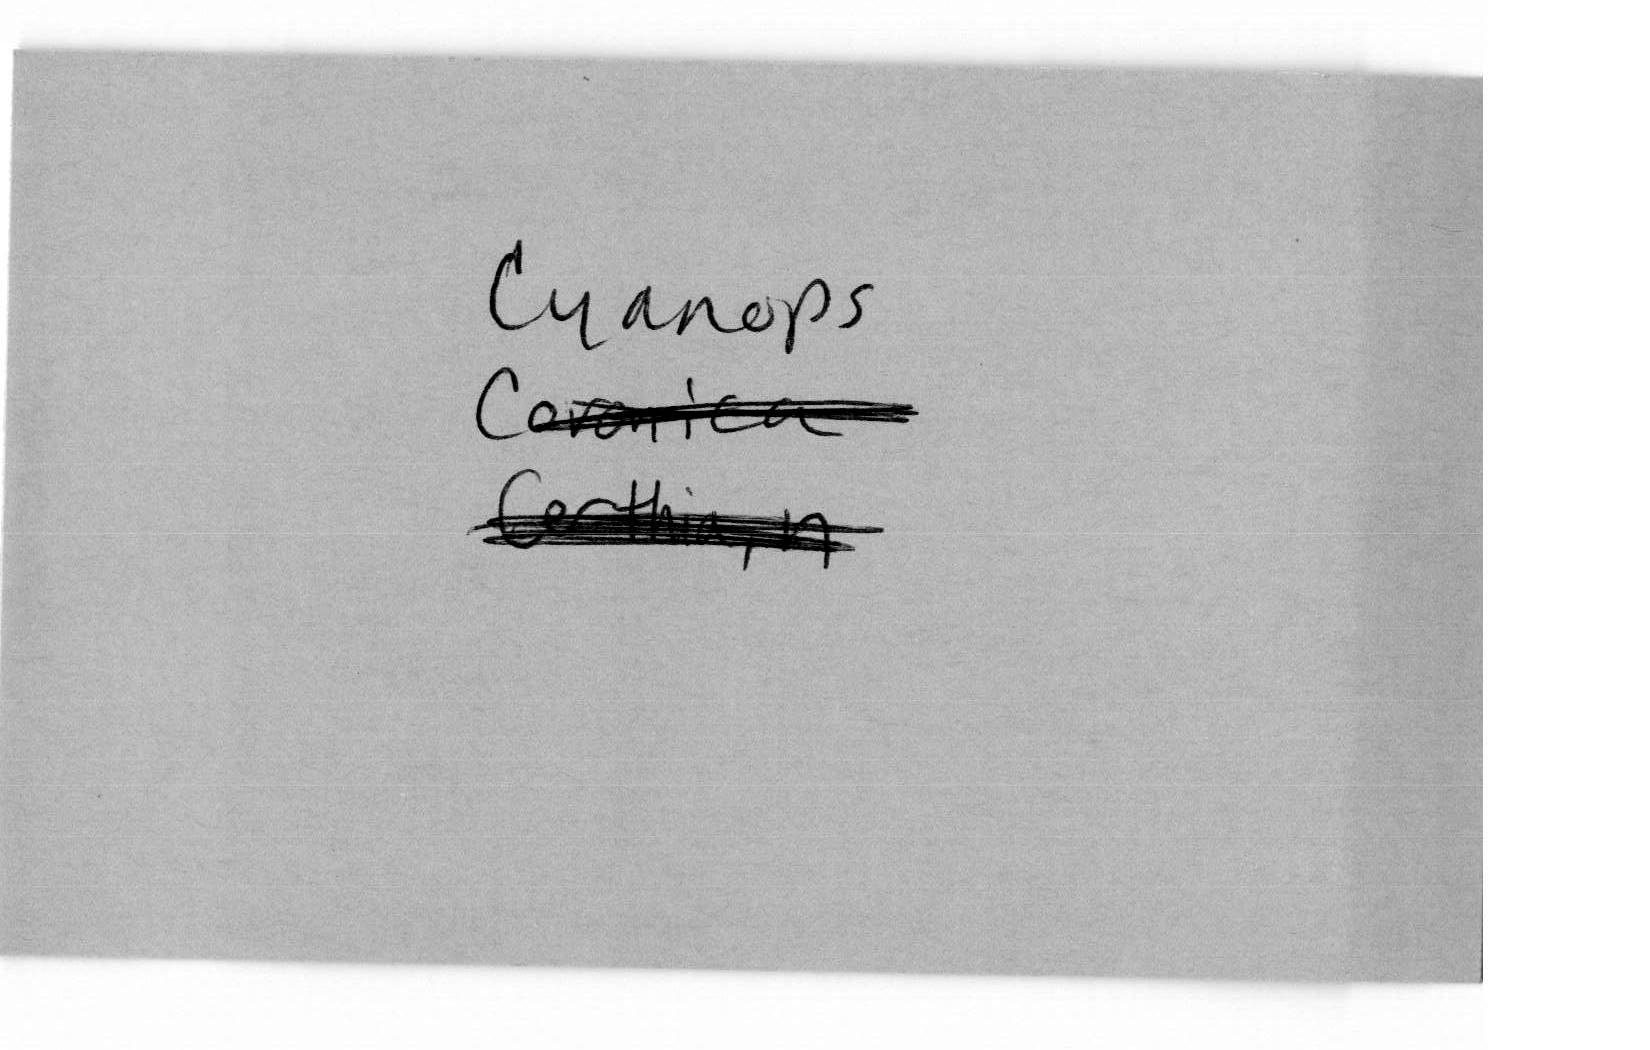 Cyanops
Coronica
Certhia, n